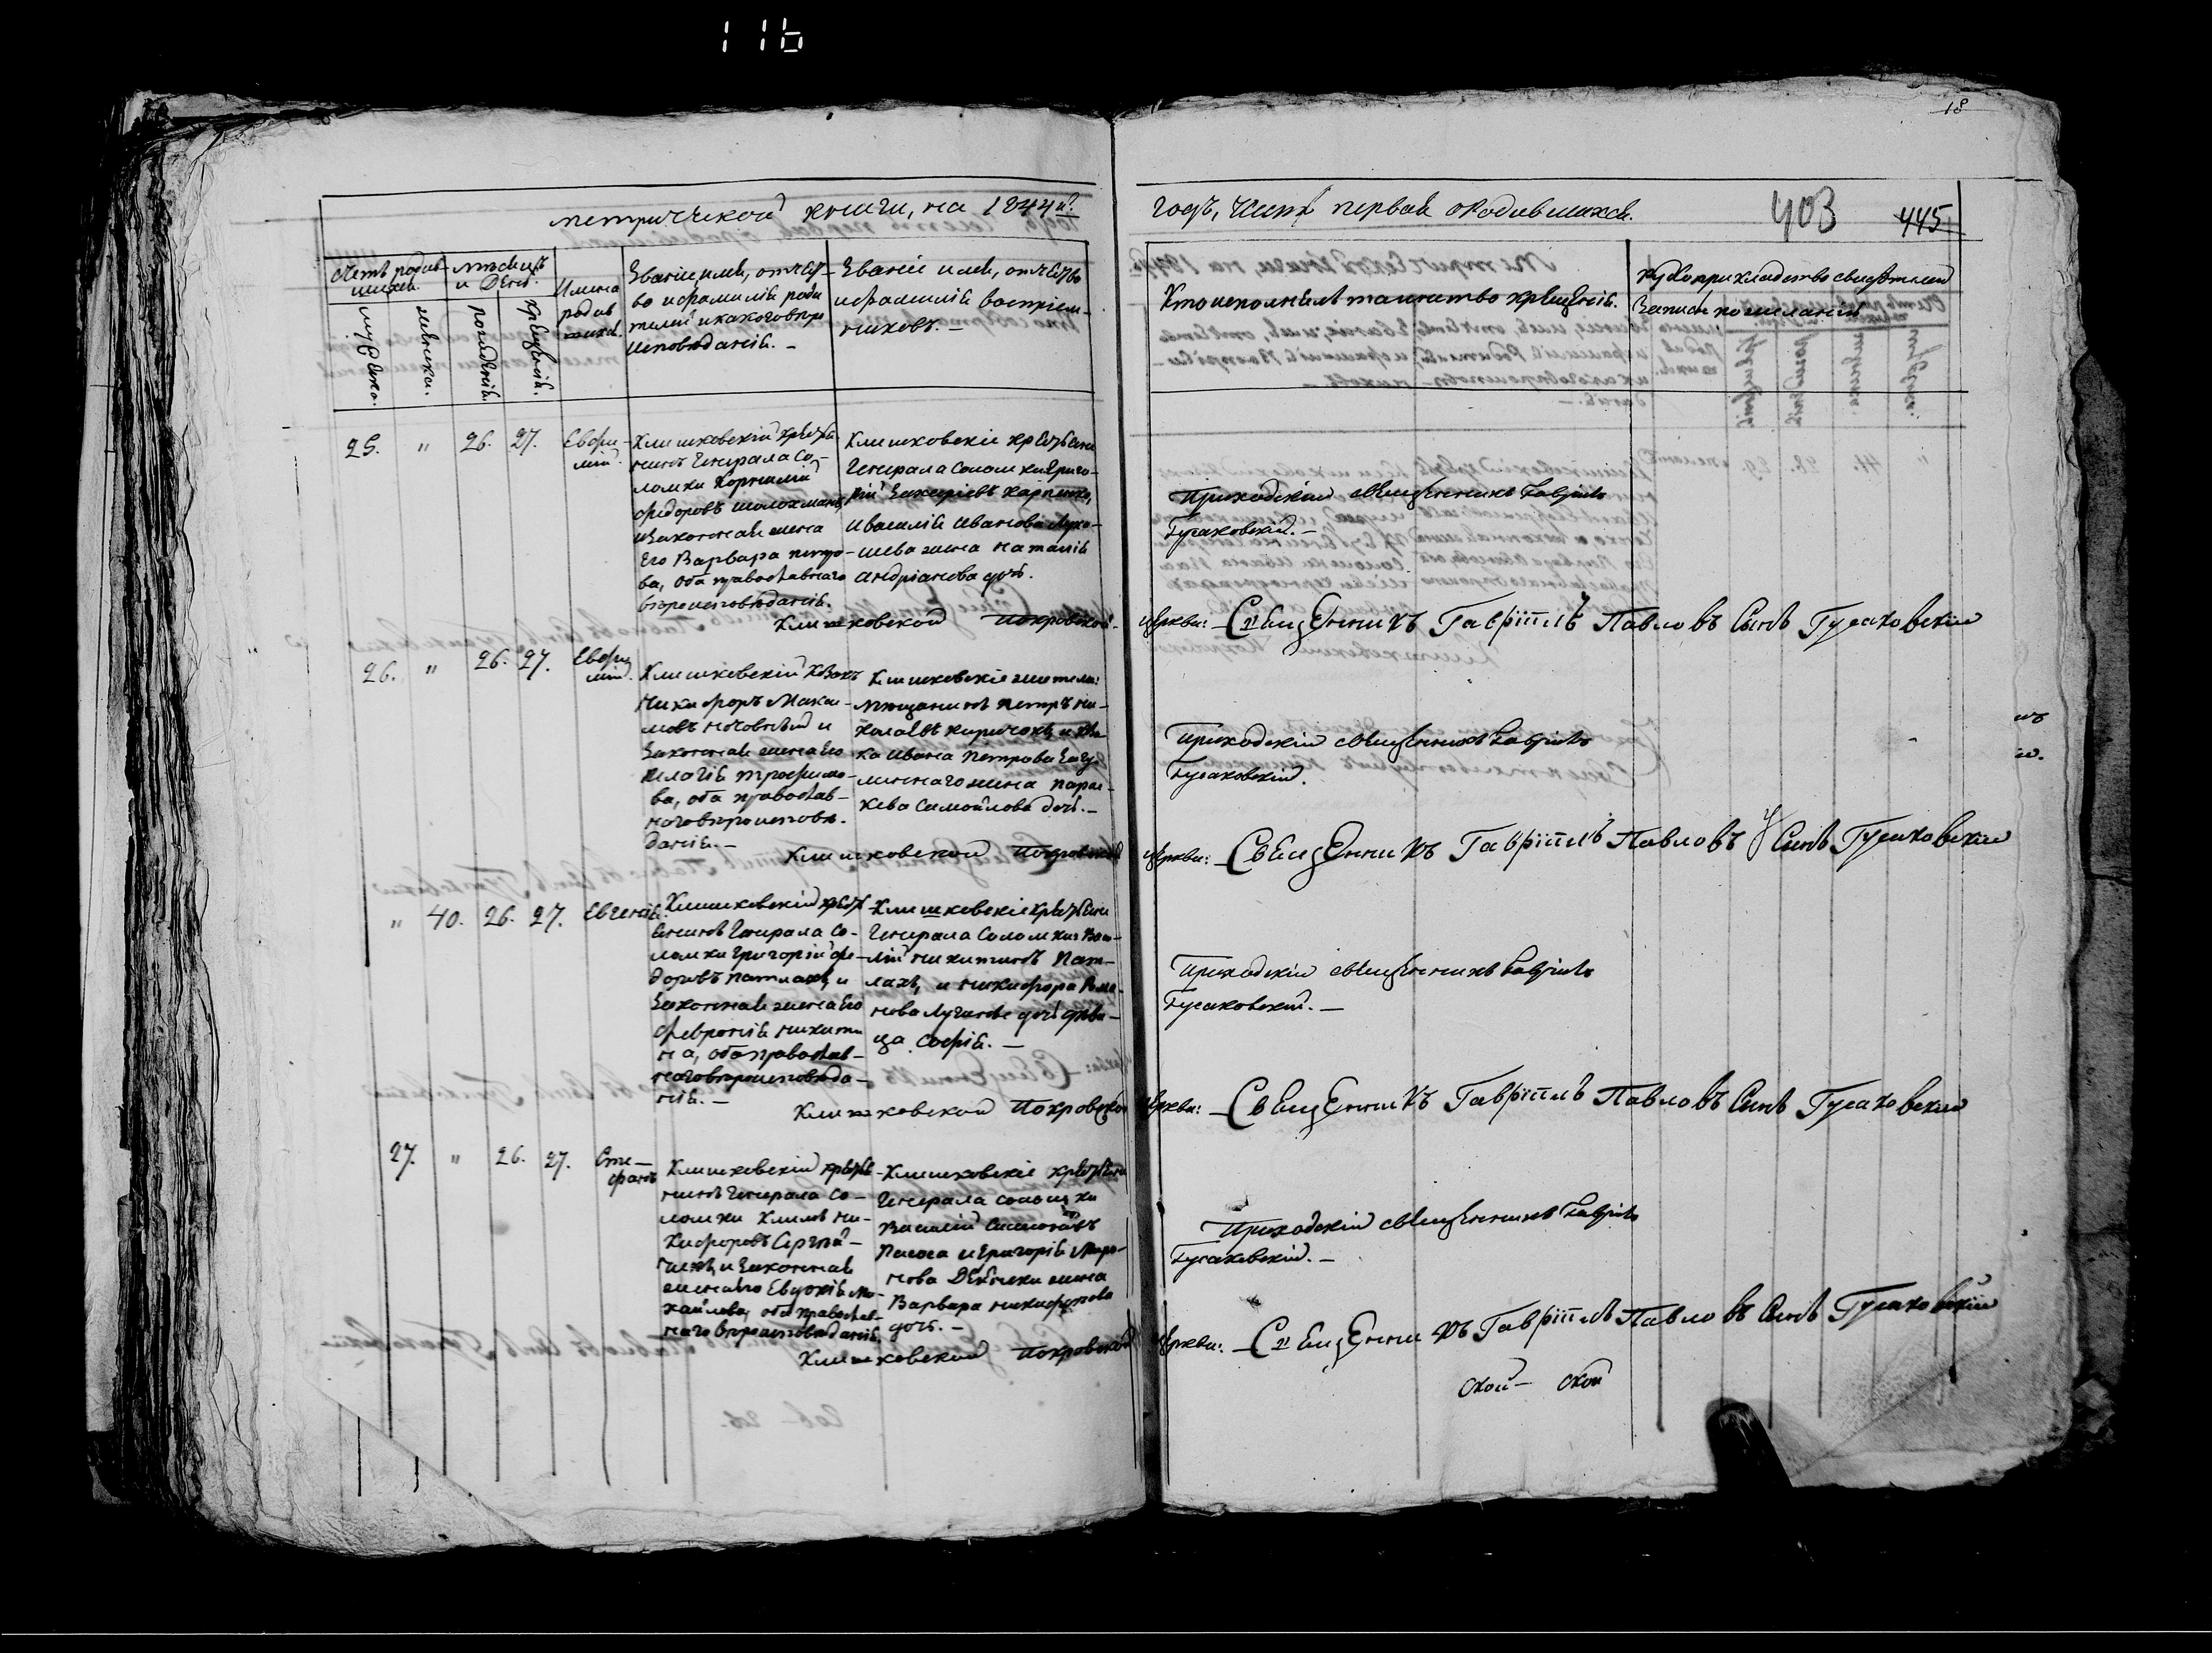 116
18
метрической книги, на 1844й.
годъ, часть первая о родившихся.
403
445
Счетъ родив-
шихся.
мѣсяцъ
и День.
Имена
родив
шихся.
Званіе, имя, отчест-
во и фамилія роди
телей и какого вѣро
исповѣданія. –
Званіе имя, отчество
и фамилія воспріем-
никовъ. –
мужеска.
женска.
рожденія.
крещенія.
Кто исполнялъ таинство крещенія.
Рукоприкладство свидѣтелей
записи по желанію
25. " 26. 27.
Евфи-
мій.
Клишковскій крестья
нинъ Генерала Со-
ломки Корнилій
Федоровъ
и законная жена
Его Варвара Петро-
ва, оба православнаго
вѣроисповѣданія.
Клишковскіе крестьяне
Генерала Соломки Григо-
рій Захаріевъ Карпенко,
и Василія Иванова
жена Наталія
Андріанова дочь.
Приходскій священникъ Гавріилъ
Гусаковскій. –
Клишковской Покровской
церкви: – Священникъ Гавріилъ Павловъ Сынъ Гусаковскій
26. " 26. 27.
Евфи
мій.
Клишковскій козакъ
Никифоръ Макси-
мовъ и
законная жена Его
Пелагія Трофимо-
ва, оба православ-
наго вѣроисповѣ-
данія. –
Клишковскіе жители:
мѣщанинъ Петръ Ни-
колаевъ и
Ивана Петрова
жена Парас-
кева Самойлова дочь. –
Приходскій священникъ Гавріилъ
Гусаковскій.
Клишковской Покровской
церкви: – Священникъ Гавріилъ Павловъ Сынъ Гусаковскій
" 40. 26. 27.
Евгенія.
Клишковскій крестья
нинъ Генерала Со-
ломки Григорій Фе-
доровъ Патлахъ, и
законная жена Его
Февронія Никити
на, оба православ-
наго вѣроисповѣда-
нія. –
Клишковскіе крестьяне
Генерала Соломки Васи-
лій Никитинъ Пат-
лахъ, и Никифора Рома-
нова дочь дѣви-
ца Софія. –
Приходскій священникъ Гавріилъ
Гусаковскій. –
Клишковской Покровской
церкви: – Священникъ Гавріилъ Павловъ Сынъ Гусаковскій
27. " 26. 27.
Сте-
фанъ
Клишковскій крестья
нинъ Генерала Со-
ломки Климъ Ни-
кифоровъ
и законная
жена Его Евдокія Ми-
хайлова, оба православ-
наго вѣроисповѣданія.
Клишковскіе крестьяне
Генерала Соломки
Василій
и Григорія Миро-
нова жена
Варвара Никифорова
дочь. –
Приходскій священникъ Гавріилъ
Гусаковскій. –
Клишковской Покровской
церкви: – Священникъ Гавріилъ Павловъ Сынъ Гусаковскій
ской – ской